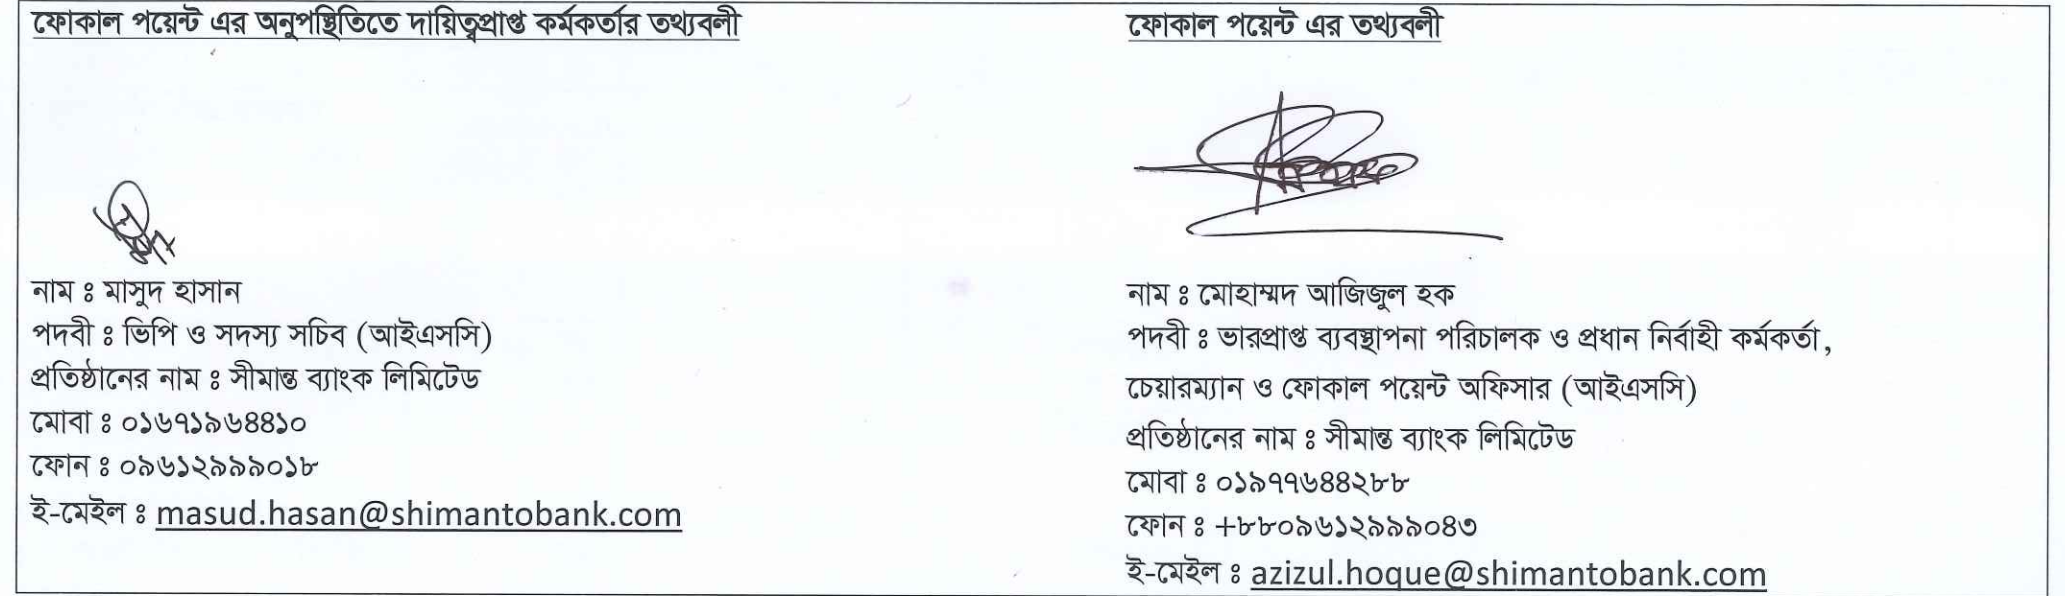 ফোকাল পয়েন্ট এর অনুপস্থিতিতে দায়িত্বপ্রাপ্ত কর্মকর্তার তথ্যবলী
নাম ঃ মাসুদ হাসান
পদবী ঃ ভিপি ও সদস্য সচিব (আইএসসি)
প্রতিষ্ঠানের নাম ঃ সীমান্ত ব্যাংক লিমিটেড
মোবা ঃ ০১৬৭১৯৬৪৪১০
ফোন ঃ ০৯৬১২৯৯৯০১৮
ই-মেইল ঃ masud.hasan@shimantobank.com
ফোকাল পয়েন্ট এর তথ্যবলী
নাম ঃ মোহাম্মদ আজিজুল হক
পদবী ঃ ভারপ্রাপ্ত ব্যবস্থাপনা পরিচালক ও প্রধান নির্বাহী কর্মকর্তা,
চেয়ারম্যান ও ফোকাল পয়েন্ট অফিসার (আইএসসি)
প্রতিষ্ঠানের নাম ঃ সীমান্ত ব্যাংক লিমিটেড
মোবা ঃ ০১৯৭৭৬৪৪২৮৮
ফোন ঃ +৮৮০৯৬১২৯৯৯০৪৩
ই-মেইল ঃ azizul.hoque@shimantobank.com